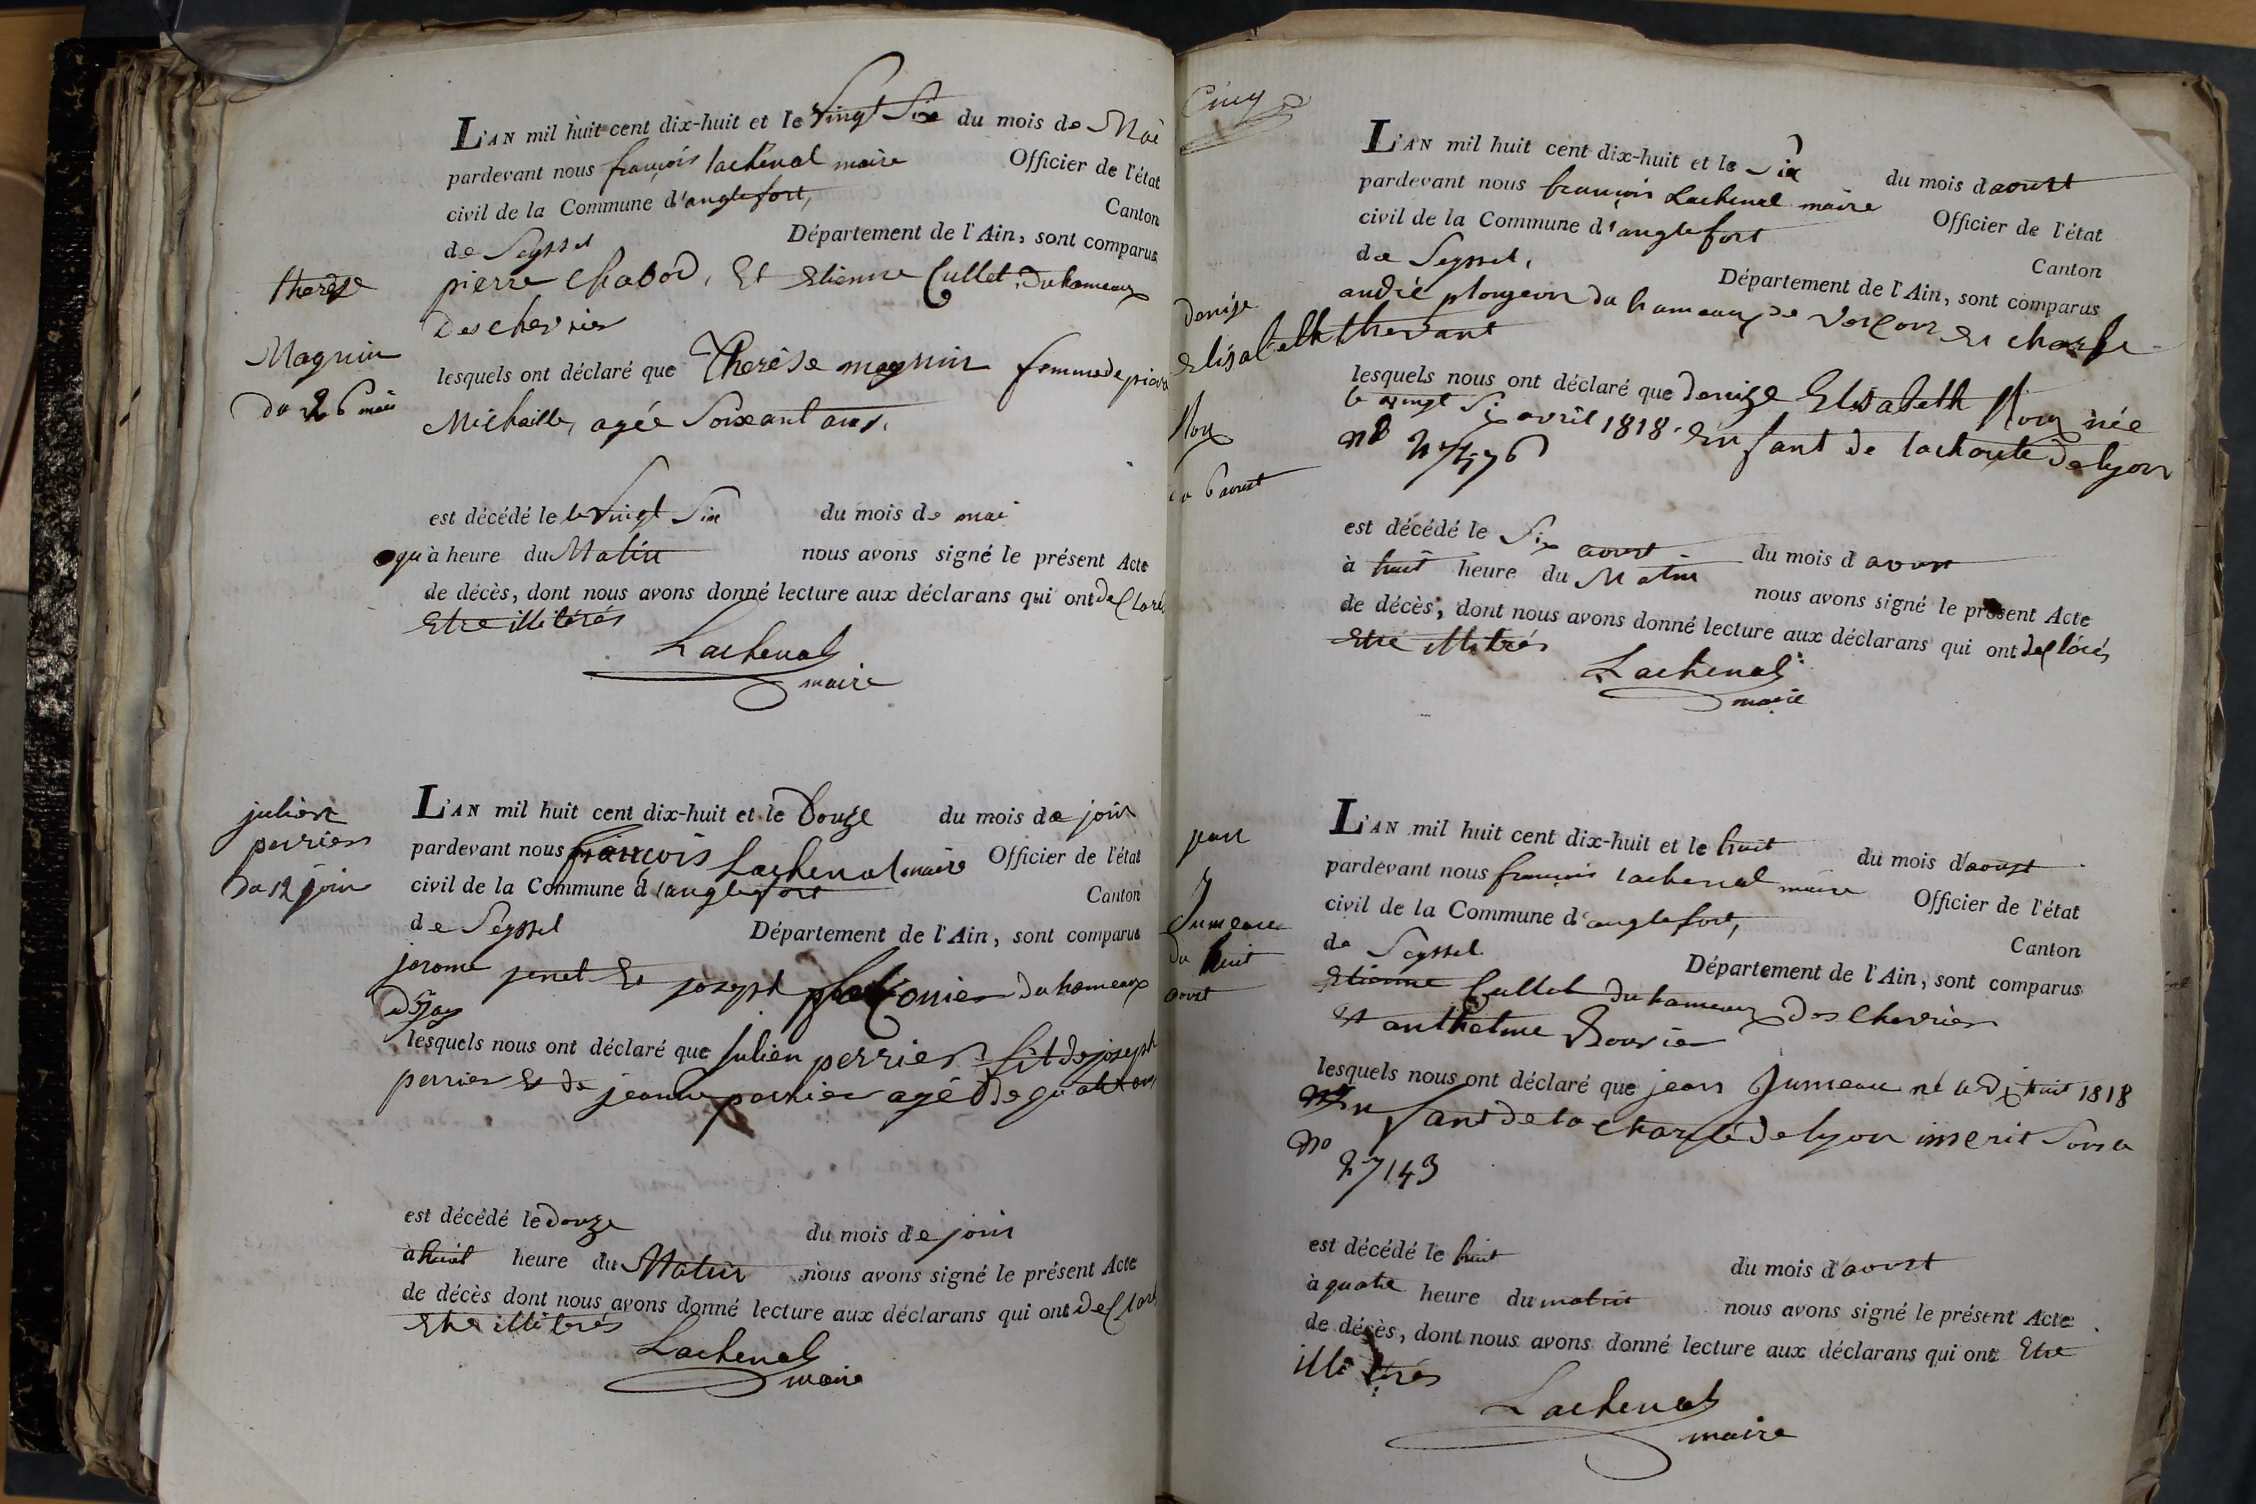 L'AN mil huit cent dix-huit et le vingt Six du mois de Mai
pardevant nous françois lachenal maire Officier de l'état
civil de la Commune d'anglefort, Canton
de Seyssel Département de l'Ain, sont comparus
pierre Chabod, Et Etienne Cullet, du hameaux
des chevrier
therese
Magnin
du 26 mai
lesquels ont déclaré que Therèse magnin femme de pierre
Michaille, agée Soixant ans,
est décédé le le vingt Six du mois de mai
à heure du Matin nous avons signé le présent Acte
de décès, dont nous avons donné lecture aux déclarans qui ont declarés
Etre illitérés
Lachenal
maire
julien
perrier
du 12 join
L'AN mil huit cent dix-huit et le Douze du mois de join
pardevant nous françois Lachenal maire Officier de l'état
civil de la Commune d'anglefort Canton
de Seyssel Département de l'Ain, sont comparus
jerome jenet Et joseph du hameaux
lesquels nous ont déclaré que julien perrier fil de joseph
perrier Et de jeanne agé de quatre ans
est décédé le douze du mois de join
à huit heure du Matin nous avons signé le présent Acte
de décès dont nous avons donné lecture aux déclarans qui ont declarés
Etre illitérés
Lachenal
maire
Cinq
L'AN mil huit cent dix-huit et le Six du mois d'aoust
pardevant nous françois Lachenal maire Officier de l'état
civil de la Commune d'anglefort Canton
de Seyssel, Département de l'Ain, sont comparus
andré plongeon du hameaux de Et charle
thevant
denize
Elisabeth
Roux
du 6 aoust
lesquels nous ont déclaré que denize Elisabeth Roux née
le vingt Six avril 1818. Enfant de la charité de lyon
n°
est décédé le Six aoust du mois d aoust
à huit heure du Matin nous avons signé le présent Acte
de décès, dont nous avons donné lecture aux déclarans qui ont declarés
Etre illitrés
Lachenal
maire
jean
Jumeau
du huit
aoust
L'AN mil huit cent dix-huit et le huit du mois d'aoust
pardevant nous françois lachenal maire Officier de l'état
civil de la Commune d'anglefort, Canton
de Seyssel Département de l'Ain, sont comparus
Etienne Cullet du hameaux des Chevrier
Et anthelme Bouvier
lesquels nous ont déclaré que jean Jumeau né le 1818
Enfant de la charité de lyon inscrit Sous le
No 27143
est décédé le huit du mois d'aoust
à quatre heure du matin nous avons signé le présent Acte
de décès, dont nous avons donné lecture aux déclarans qui ont Etre
illitérés
Lachenal
maire